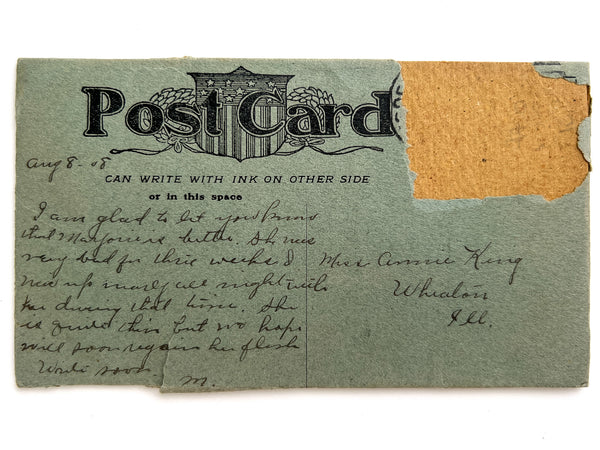 Post Card
Aug 8-08
CAN WRITE WITH INK ON OTHER SIDE
or in this space
I am glad to let you know
that Marjorie is better. She was
very bad for three weeks I
was up nearly all night with
her during that time. She
is quite thin but we hope
will soon regain her flesh
Write soon
M.
Miss Annie King
Wheaton
Ill.